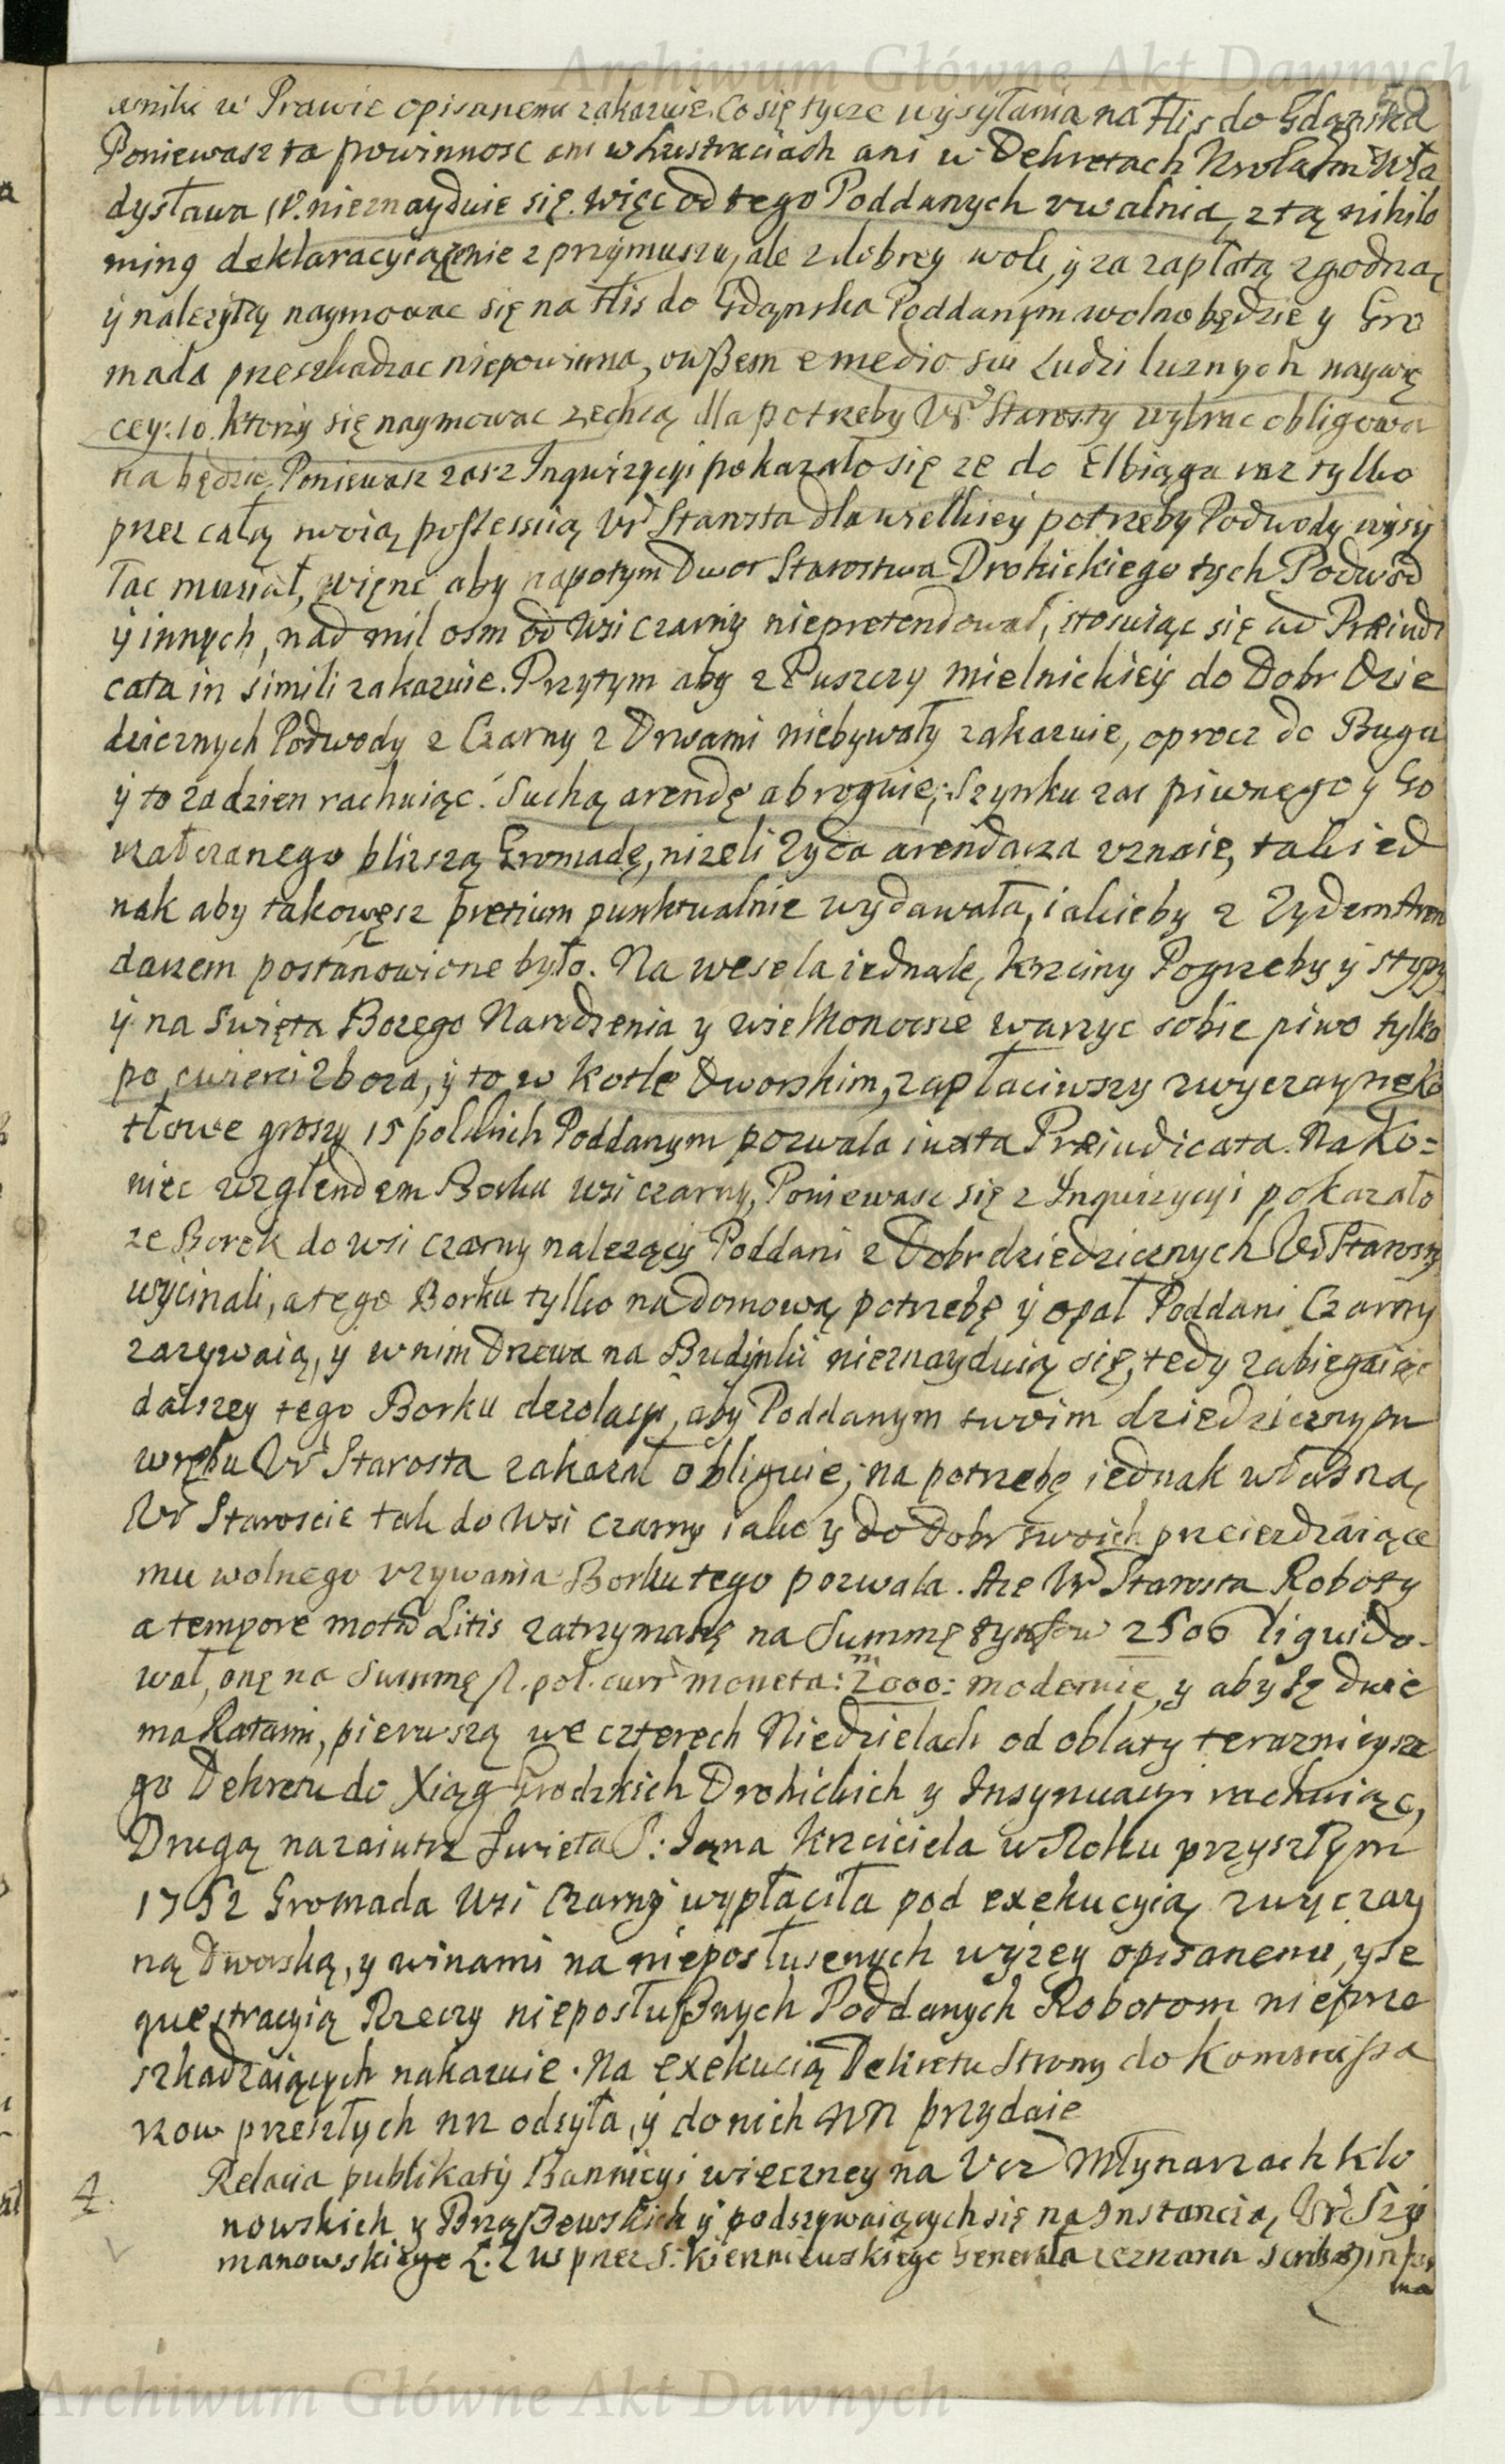 Archiwum Główne Akt Dawnych
50
w Prawie opisanemu zakazuie. Co się tycze wysyłania na Flis do Gdąnska
Poniewasz ta powinnosc ani w Lustraciach ani w Dekretach Krola Jmci Wła
dysława IV. nieznayduie się. więc od tego Poddanych uwalnia, z tą nihilo
ming deklaracyią ze nie z przymuszu, ale z dobrey woli, y za zapłatą zgodną
y nalezytą naymowac się na Flis do Gdąnska Poddanym wolno będzie y Gro
mada przeszkadzac niepowinna, owszem e medio sui Ludzi luznych naywię
cey: 10. ktorzy się naymowac zechcą dla potrzeby Ur Starosty wybrac obligowa
na będzie, Poniewasz zas z Inqwizycyi pokazało się ze do Elbiąga raz tylko
przez całą swoią possessiią Ur Starosta dla wielkiey potrzeby Podwody wysy
łac musiał, więnc aby napotym Dwor Starostwa Drohickiego tych Podwod
y innych, nad mil osm od wsi Czarny niepretendował, stosuiąc się ad Præiudi
cata in simili zakazuie. Przytym aby z Puszczy Mielnickiey do Dobr Dzie
dzicznych Podwody z Czarny z Drwami niebywały zakazuie, oprocz do Bugu
y to za dzien rachuiąc. Suchą arendę abroguie; Szynku zas piwnego y Go
rzałczanego blizszą Gromadę, nizeli Zyda arendarza uznaie, tak ied
nak aby takowęsz pretium punktualnie wydawała, iakieby z Zydem Aren
darzem postanowione było. Na wesela iednak, krzciny Pogrzeby y stypy
y na Swięta Bozego Narodzenia y wielkonocne warzyc sobie piwo tylko
po cwierci zboza, y to w kotle Dworskim, zapłaciwszy zwyczayne Ko
tłowe groszy 15 polskich Poddanym pozwala iuxta Præiudicata. Na Ko=
niec wzglendem Borku wsi Czarny, Poniewasz się z Inquizycyi pokazało
ze Borek do wsi Czarny nalezący Poddani z Dobr dziedzicznych Ur Starosty
wycinali, a tego Borku tylko na domową potrzebę y opał Poddani Czarny
zazywaią, y w nim Drzewa na Budynki nieznayduią się, tedy zabiegaiąc
dalszey tego Borku dezolacyi, aby Poddanym swoim dziedzicznym
wrębu Ur Starosta zakazał obliguie; na potrzebę iednak własną
Ur Staroscie tak do wsi Czarny iako y do Dobr swoich przeiezdzaiące
mu wolnego uzywania Borku tego pozwala. Aze Ur Starosta Roboty
a tempore motæ Litis zatrzymane na Summę tynfow 2500 liquido-
wał, onę na Summę fl. pol. curr moneta: 2000: moderuie, y aby tę dwie
ma Ratami, pierwszą we czterech Niedzielach od oblaty teraznieysze
go Dekretu do Xiąg Grodzkich Drohickich y Insynuacyi rachuiąc,
Drugą nazaiutrz Swięta S: Jąna krzciciela w Roku przyszłym
1752 Gromada wsi Czarny wypłaciła pod exekucyią zwyczay
ną Dworską, y winami na nieposłusznych wyzey opisanemi, y se
questracyią Rzeczy nieposłusznych Poddanych Robotom nieprze
szkadzaiących nakazuie. Na exekucią Dekretu Strony do Kommissa
rzow przeszłych NN odsyła, y do nich NN przydaie
4. Relacia publikaty Bannicyi wieczney na Ucz Młynarzach Klo
nowskich y Brzązewskich y podszywaiących się na Instancią Ur Szy
manowskiego przez S. Kierniewskiego Generała zeznana
ma
Archiwum Główne Akt Dawnych